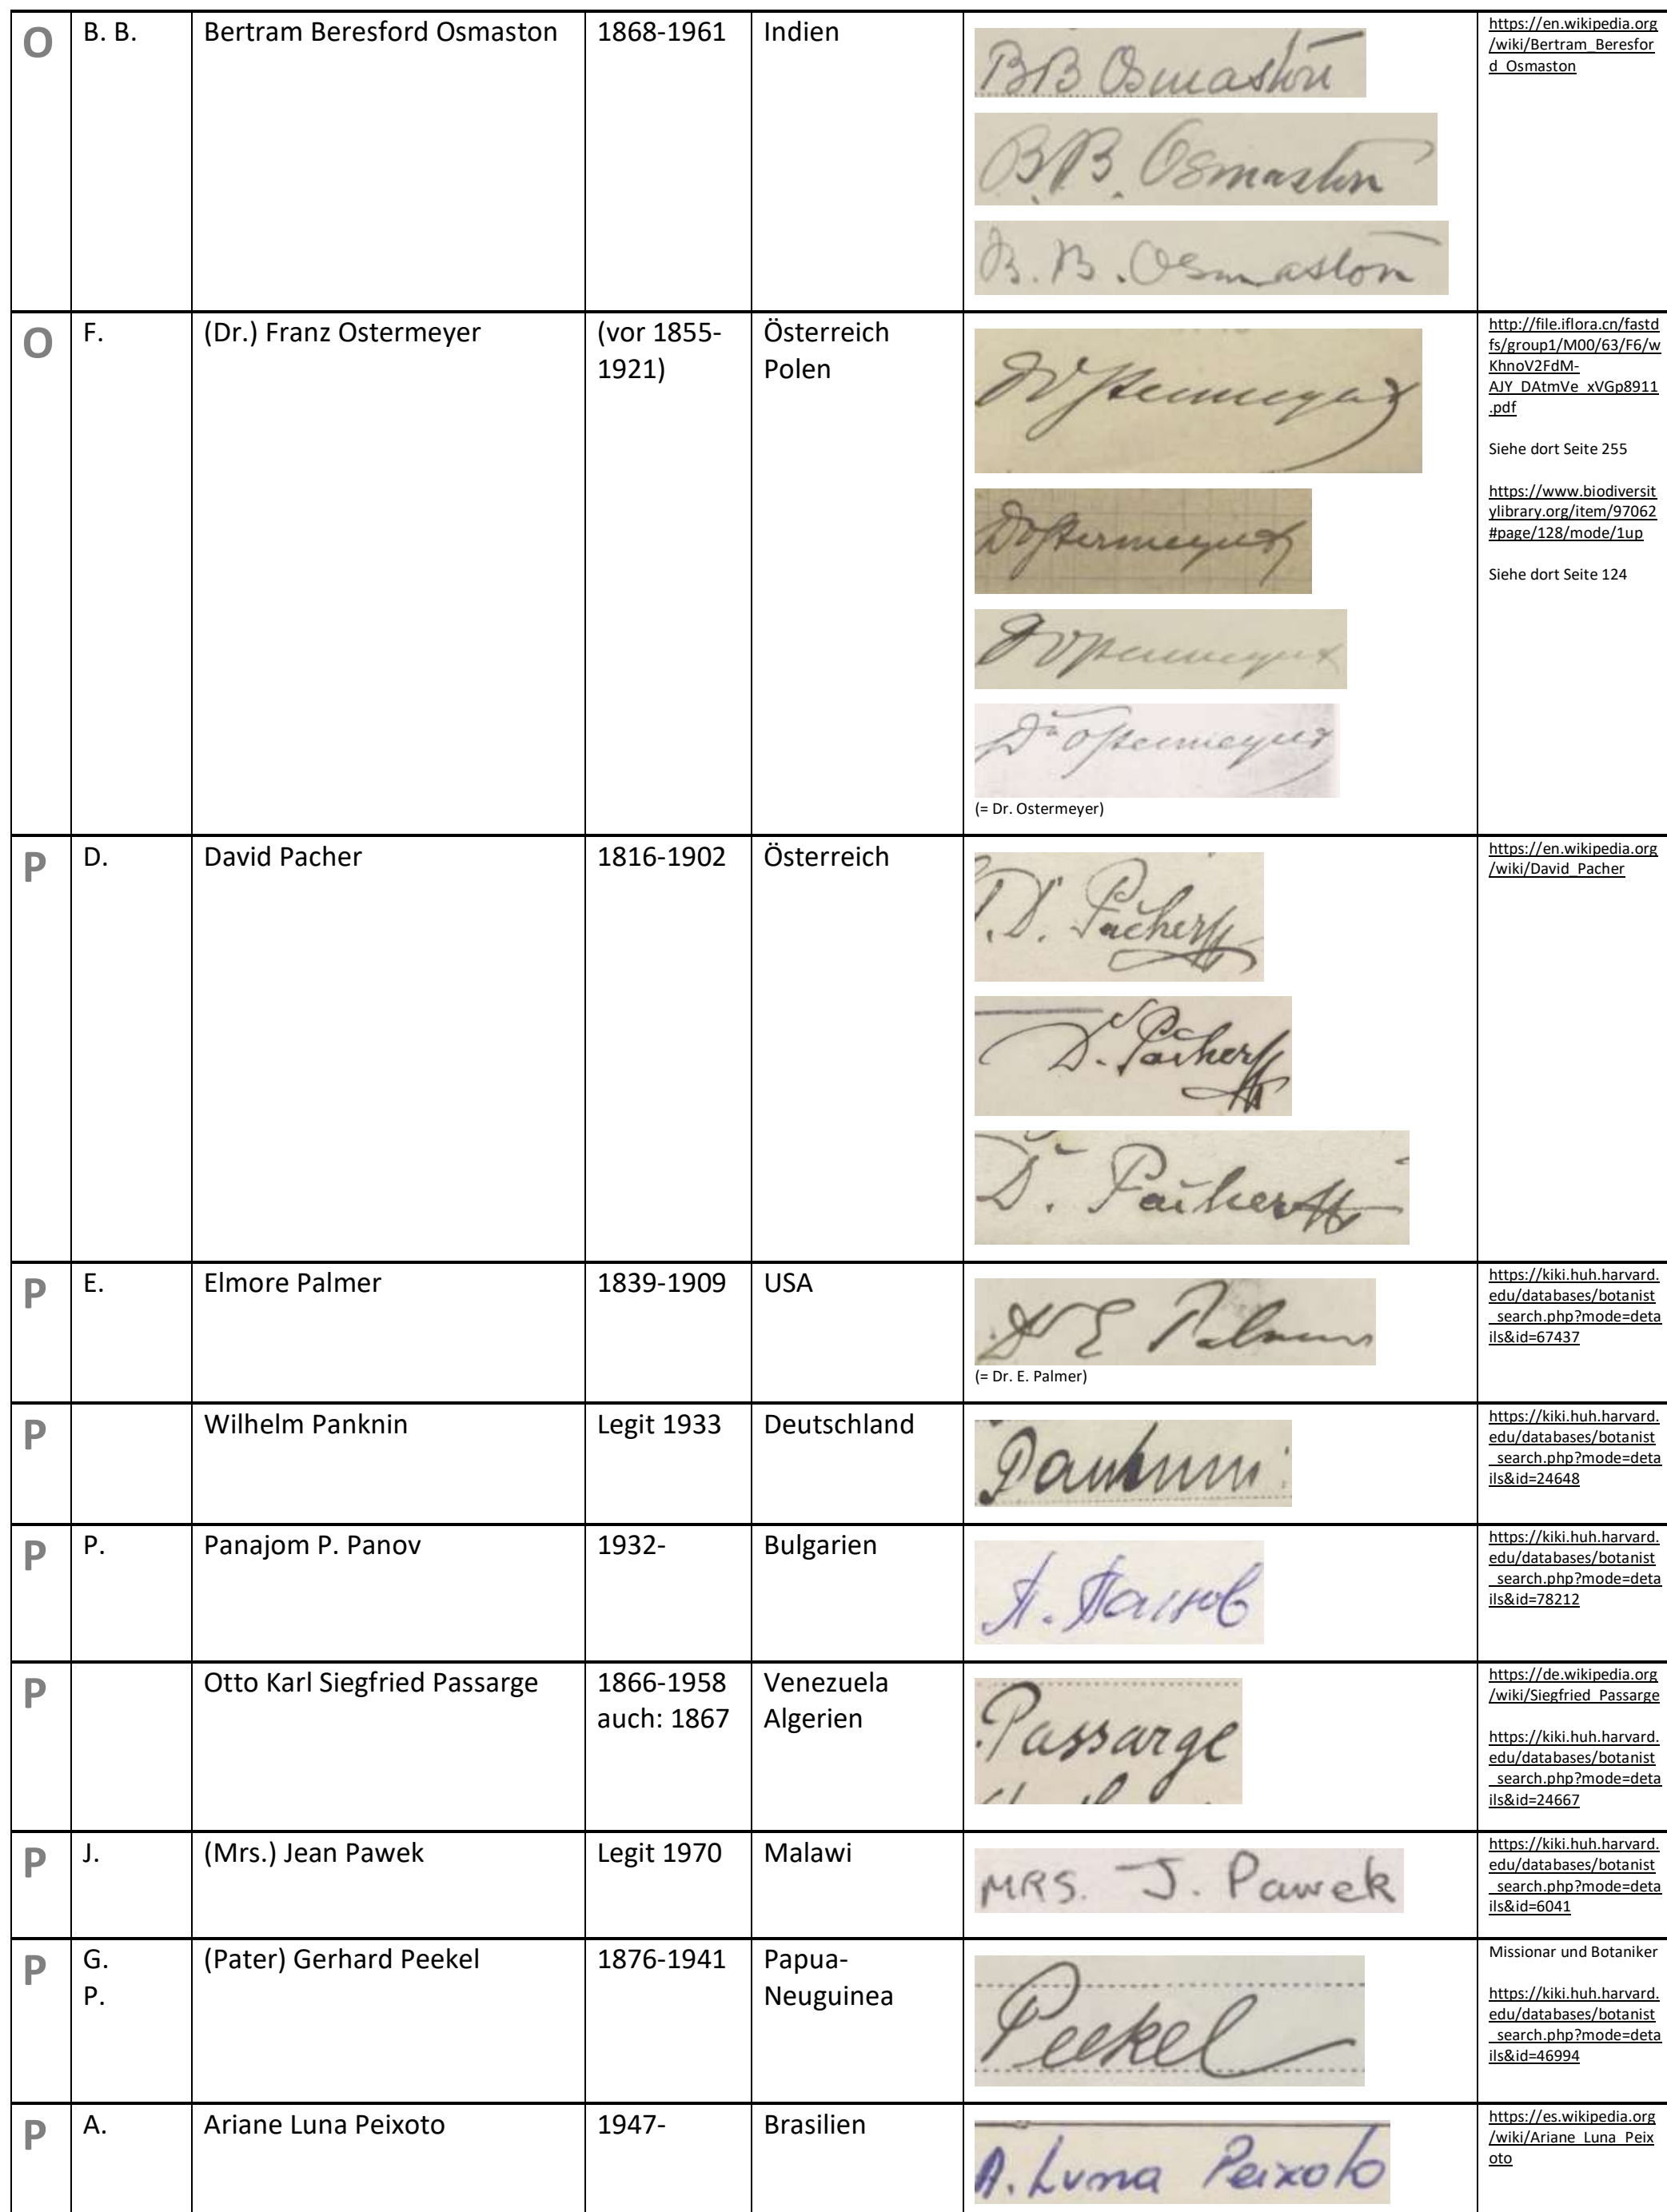 O B. B. Bertram Beresford Osmaston 1868-1961 Indien
BB Osmaston
B.B. Osmaston
B. B. Osmaston
https://en.wikipedia.org
/wiki/Bertram_Beresfor
d_Osmaston
O F. (Dr.) Franz Ostermeyer (vor 1855-
1921)
Österreich
Polen
Dr Ostermeyer
Dr Ostermeyer
Dr Ostermeyer
Dr Ostermeyer
(= Dr. Ostermeyer)
http://file.iflora.cn/fastd
fs/group1/M00/63/F6/w
KhnoV2FdM-
AJY_DAtmVe_xVGp8911
.pdf
Siehe dort Seite 255
https://www.biodiversit
ylibrary.org/item/97062
#page/128/mode/1up
Siehe dort Seite 124
P D. David Pacher 1816-1902 Österreich
D. Pacher
D. Pacher
D. Pacher
https://en.wikipedia.org
/wiki/David_Pacher
P E. Elmore Palmer 1839-1909 USA
Dr E Palmer
(= Dr. E. Palmer)
https://kiki.huh.harvard.
edu/databases/botanist
_search.php?mode=deta
ils&id=67437
P Wilhelm Panknin Legit 1933 Deutschland
Panknin
https://kiki.huh.harvard.
edu/databases/botanist
_search.php?mode=deta
ils&id=24648
P P. Panajom P. Panov 1932- Bulgarien
П. Панов
https://kiki.huh.harvard.
edu/databases/botanist
_search.php?mode=deta
ils&id=78212
P Otto Karl Siegfried Passarge 1866-1958
auch: 1867
Venezuela
Algerien
Passarge
https://de.wikipedia.org
/wiki/Siegfried_Passarge
https://kiki.huh.harvard.
edu/databases/botanist
_search.php?mode=deta
ils&id=24667
P J. (Mrs.) Jean Pawek Legit 1970 Malawi
MRS. J. Pawek
https://kiki.huh.harvard.
edu/databases/botanist
_search.php?mode=deta
ils&id=6041
P G.
P.
(Pater) Gerhard Peekel 1876-1941 Papua-
Neuguinea
Peekel
Missionar und Botaniker
https://kiki.huh.harvard.
edu/databases/botanist
_search.php?mode=deta
ils&id=46994
P A. Ariane Luna Peixoto 1947- Brasilien
A. Luna Peixoto
https://es.wikipedia.org
/wiki/Ariane_Luna_Peix
oto